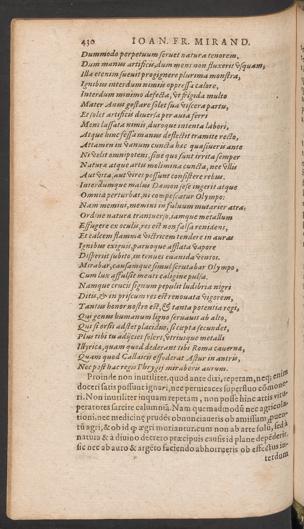 430 IOAN. FR. MIRAND.
Dummodo perpetuum servet naturæ tenorem,
Dum manus artificis, dum mens non fluxerit usquam,
Illa etenim suevit progignere plurima monstra,
Ignibus interdum nimiis oppressa calore,
Interdum minimo defecta, & frigida multo
Mater Anus gestare solet sua viscera partu,
Et solet artifici diversa per auia ferri
Mens lassata nimis, duroque intenta labori,
Atque hinc fessa manus deflectit tramite recto,
Attamen in vanum cuncta hæc quæsiveris ante
Ni velit omnipotens, sine quo sunt irrita semper
Naturæ atque artis molimina cuncta, nec ullis
Aut vita, aut vires possunt consistere rebus.
Interdumque malus Dæmon sese ingerit atque
Omnia perturbat, ni compescatur Olympo.
Nam memini, memini in fulvum mutarier atra,
Ordine naturæ transverso, tamque metallum
Effugere ex oculis, res est non falsa renidens,
Et calcem flamma victricem tendere in auras
Ignibus exiguis, parvoque afflata vapore
Disperiit subito, in tenues evanida ventos.
Mirabar, causamque simul scrutabar Olympo,
Cum lux affulsit media caligine pulsa.
Namque crucis signum pepulit ludibria nigri
Ditis, & in priscum res est renovata vigorem,
Tantus honor nostro est, & tanta potentia regi,
Qui genus humanum ligno servavit ab alto,
Qui si orsis adstet placidus, si cœpta secundet,
Plus tibi tu adijcies fulvi, vtriusque metalli
Illyrica, quam quod dederant tibi Roma caverna,
Quam quod Callaicis effoderat Astur in antris,
Nec post hac regis Phrygij miraberis aurum.
Proinde non inutiliter, quod ante dixi, repetam, neque enim
doceri satis possunt ignari, nec pervicaces superfluo cōmone-
ri. Non inutiliter inquam repetam, non posse hinc artis vitu-
peratores sarcire calumniā. Nam quemadmodū nec agricola-
tioni, nec medicinę prudēs obnunciaueris ob amissum
tū agri, & ob id ægri moriantur. cum non ab arte solū, sed à
natura & à diuino decreto præcipuis causis id plane depēderit,
sic nec ab auro & argēto faciendo abhorrueris ob effectus in-
terdum